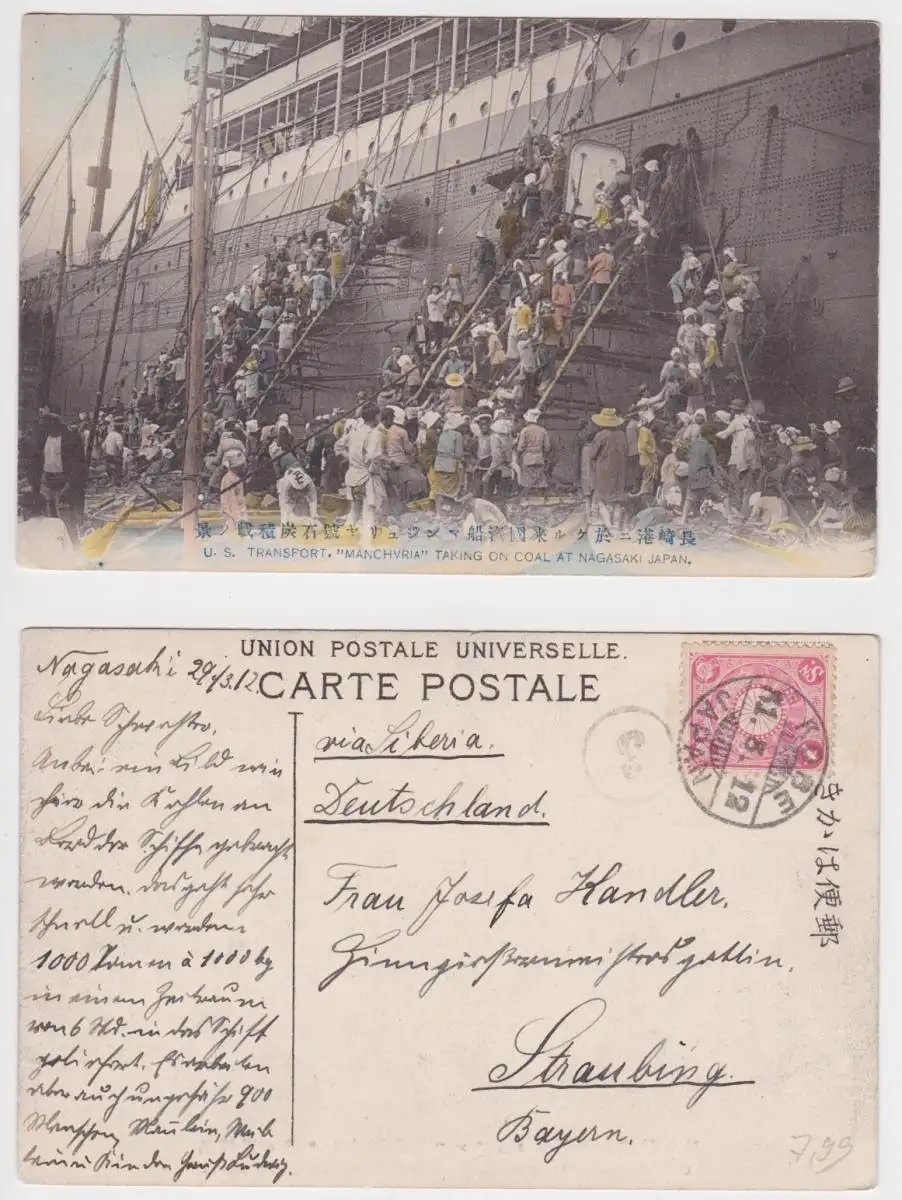 長崎港ニ於ケル米國滊船マンジュリヤ號石炭積載ノ景
U. S. TRANSPORT. "MANCHVRIA" TAKING ON COAL AT NAGASAKI JAPAN.
UNION POSTALE UNIVERSELLE.
CARTE POSTALE
Nagasaki 29/3.12
Liebe Schwester,
Anbei ein Bild wie
hier die Kohlen an
Bord der Schiffe gebracht
werden. Das geht sehr
schnell u. werden
1000 Tonnen à 1000 kg
in einem Zeitraum
von 6 Std. in das Schiff
geliefert. Es arbeiten
aber auch ungefähr 900
Menschen, Männlein, Weib
lein u Kinder Gruß Ludwig.
via Siberia.
Deutschland.
Frau Josefa Kandler.
Straubing.
Bayern.
KOBE
JAPAN
きかは便郵
7,99